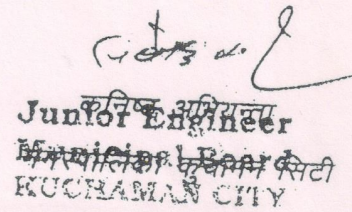 कनिष्ठ अभियन्ता
Junior Engineer
नगरपालिका कुचामन सिटी
Municipal Board
KUCHAMAN CITY